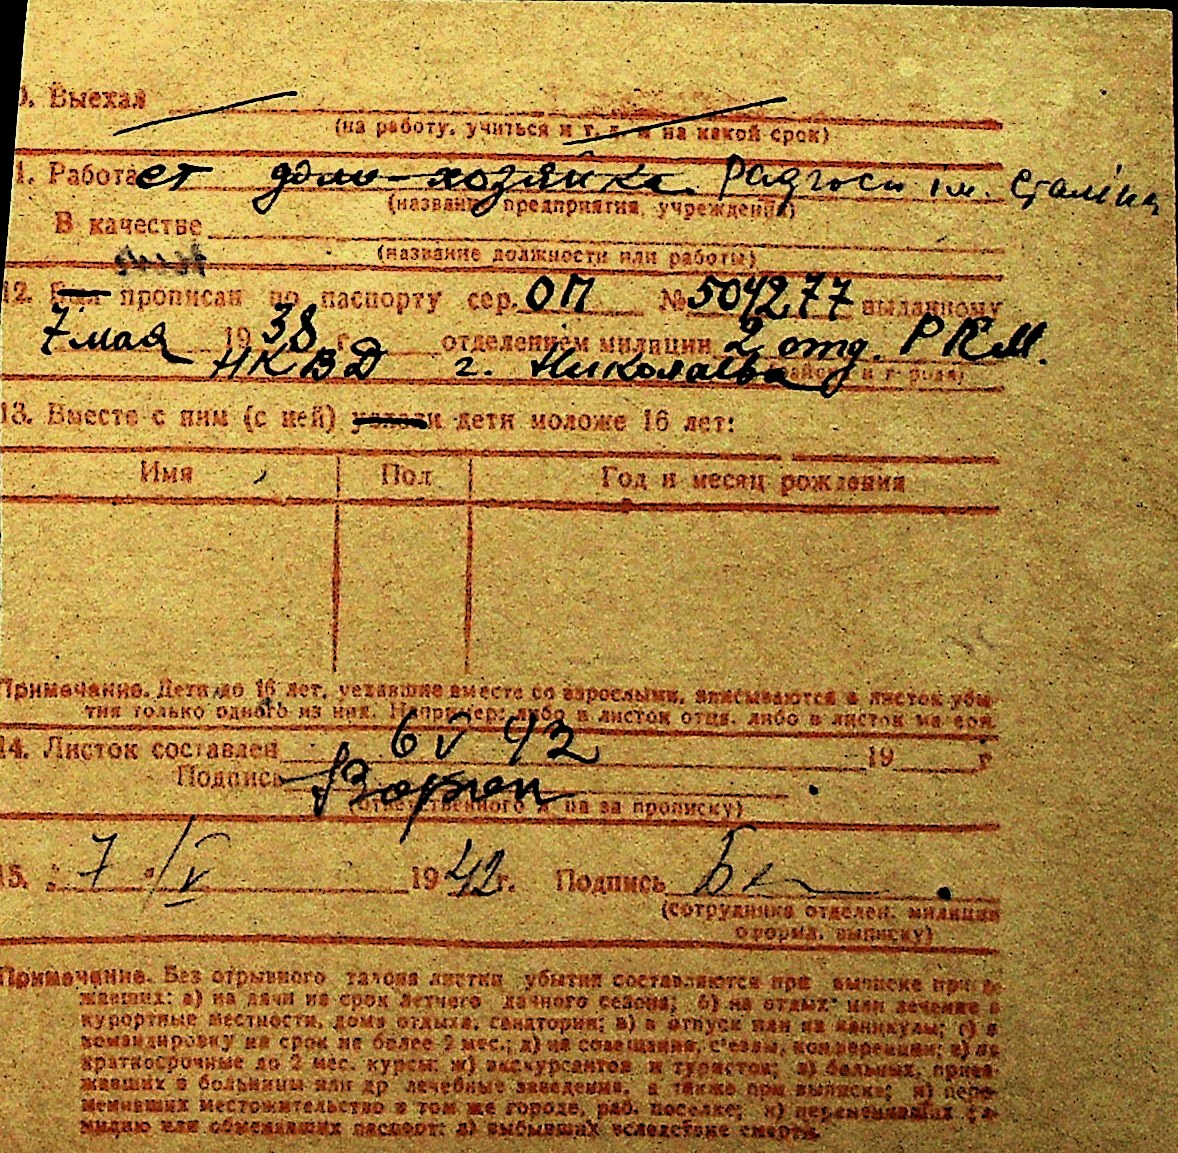 0. Выехал
(на работу, учиться и т. д. и на какой срок)
1. Работает дом-хозяйка. Радгосп ім. Сталіна
(название предприятия, учреждения)
В качестве
(название должности или работы)
12. Был прописан по паспорту сер. ОП № 504277 выданному
7 мая 1938 г. отделением милиции 2 отд. РКМ.
НКВД г. Николаева
13. Вместе с ним (с ней) уехали дети моложе 16 лет:
Имя Пол Год и месяц рождения
Примечание. Дети до 16 лет, уехавшие вместе со взрослыми, вписываются в листок убы-
тия только одного из них. Например: либо в листок отца, либо в листок матери.
14. Листок составлен 6 V 42 19 г
Подпись
(ответственного лица за прописку)
15. 7/V 1942 г. Подпись
(сотрудника отделен. милиции
оформл. выписку)
Примечание. Без отрывного талона листки убытия составляются при выписке приез-
жавших: а) на дачи на срок летнего дачного сезона; б) на отдых или лечение в
курортные местности, дома отдыха, санатории; в) в отпуск или на каникулы; г) в
командировку на срок не более 2 мес.; д) на совещания, с'езды, конференции; е) на
краткосрочные до 2 мес. курсы; ж) экскурсантов и туристов; з) больных, приез-
жавших в больницы или др лечебные заведения, а также при выписке; и) пере-
менивших местожительство в том же городе, раб. поселке; к) переменивших фа-
милию или обменявших паспорт; л) выбывших вследствие смерти.